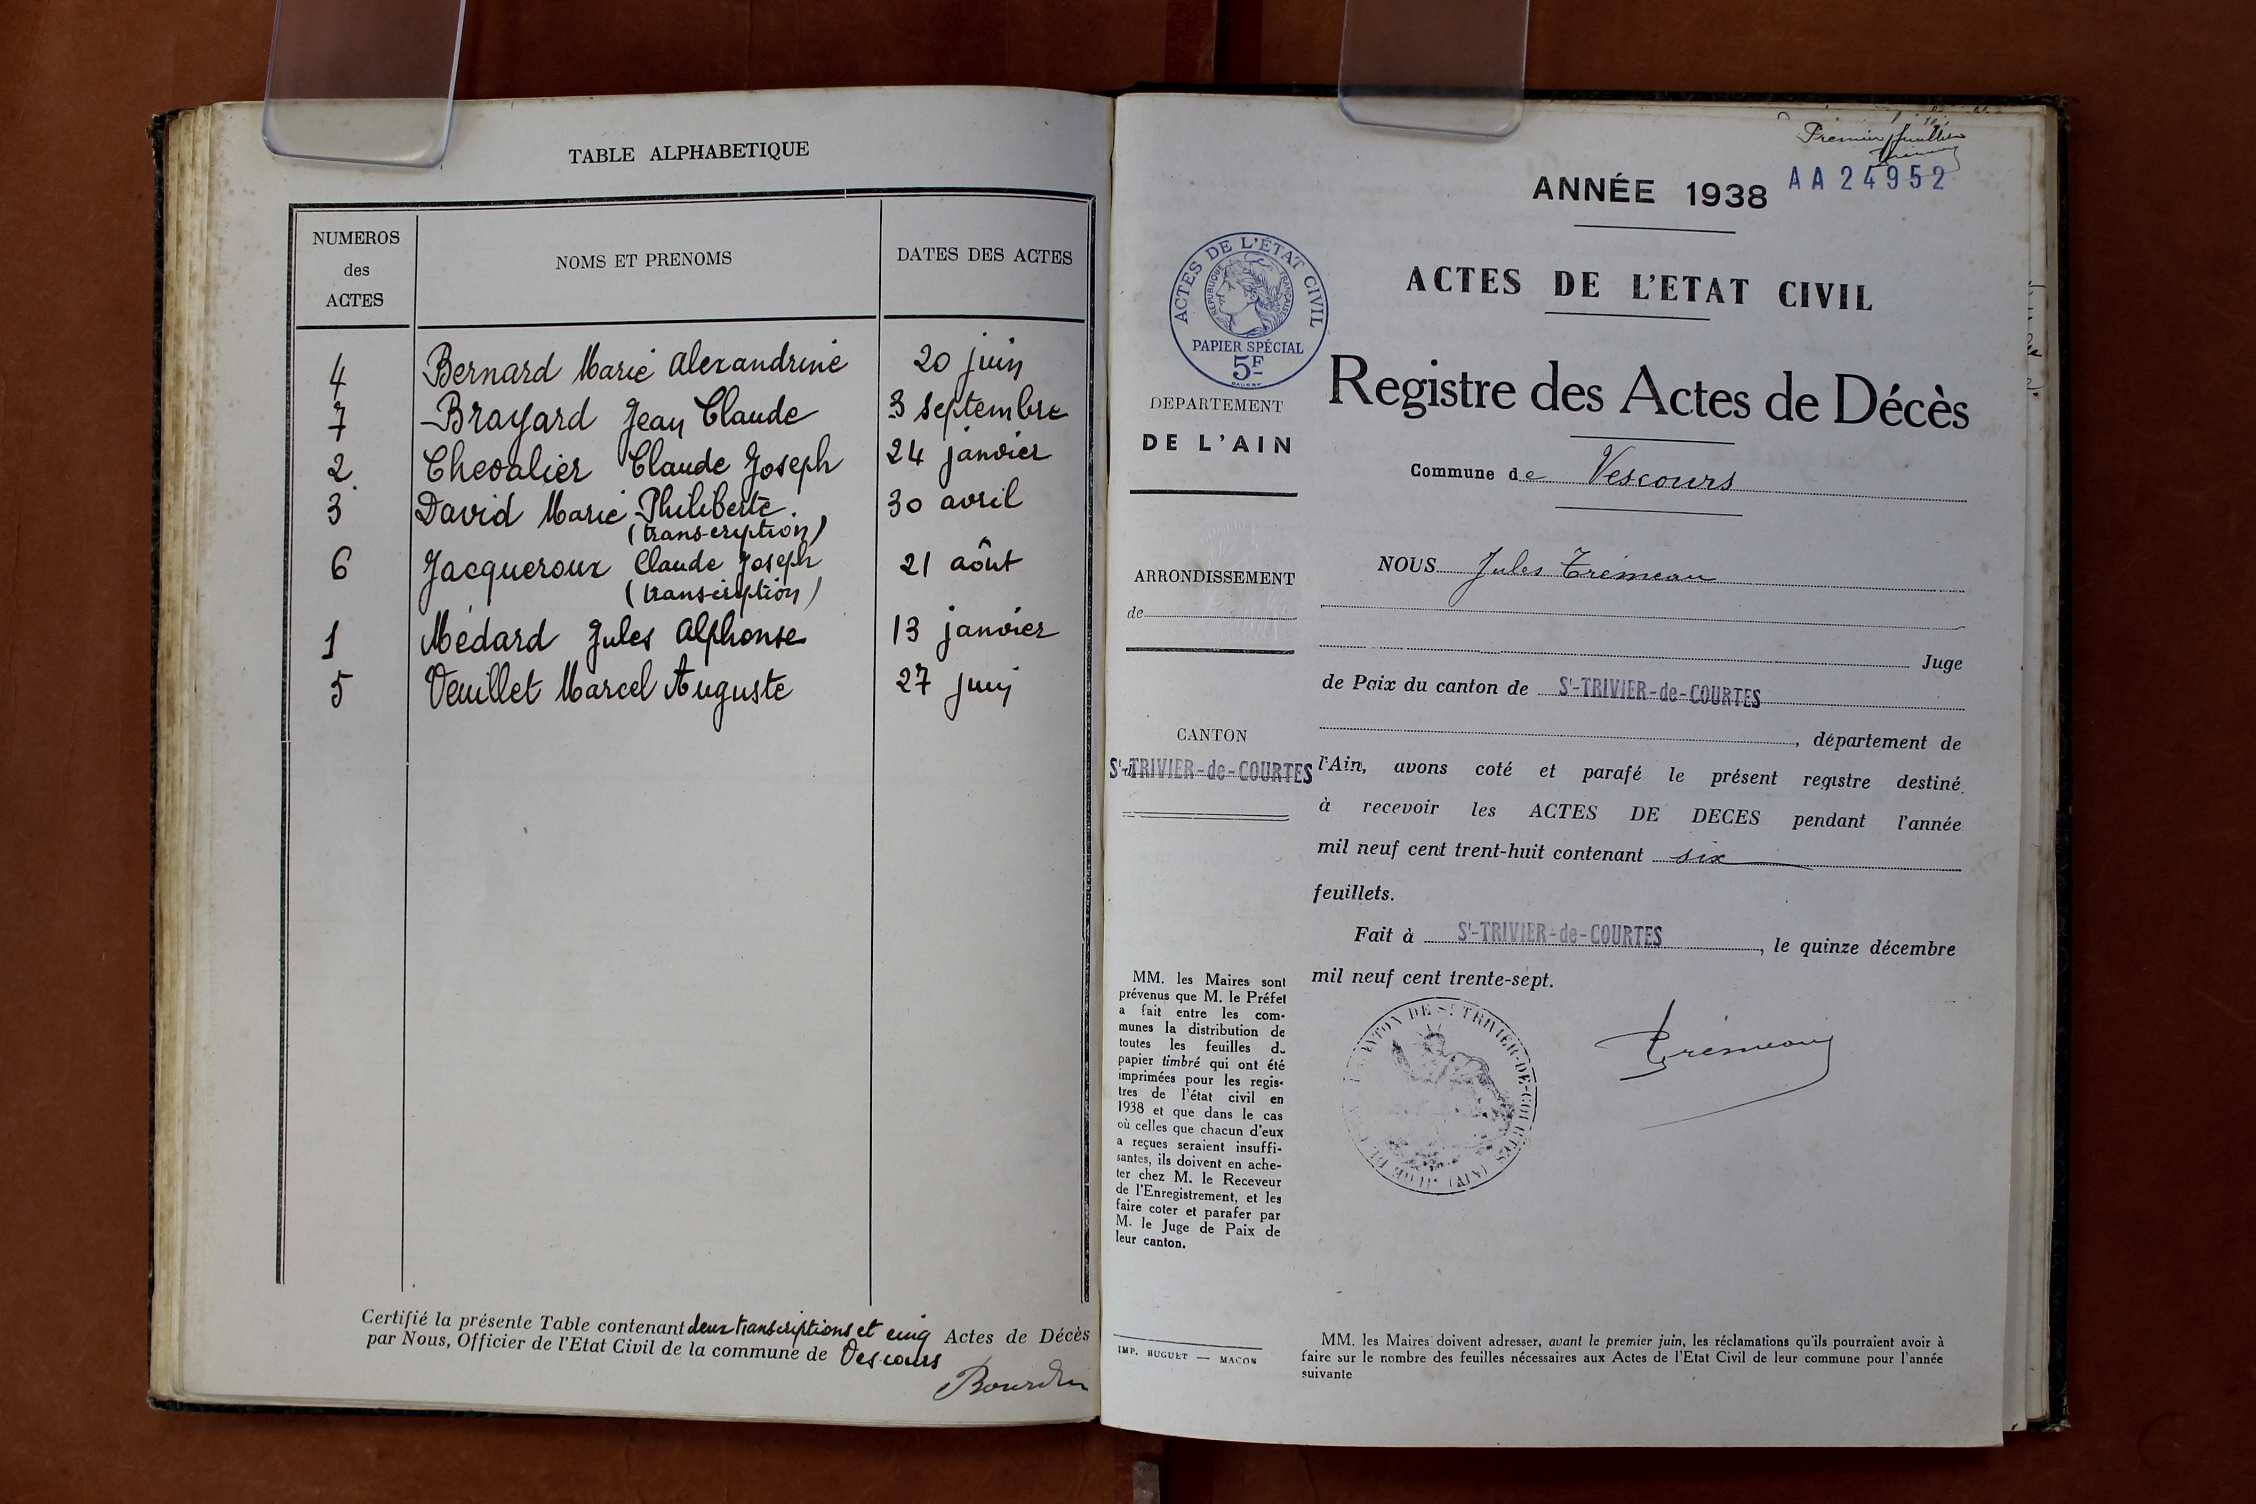 TABLE ALPHABETIQUE
NUMEROS
des
ACTES
NOMS ET PRENOMS
DATES DES ACTES
4 Bernard Marie Alexandrine 20 juin
7 Brayard Jean Claude 3 septembre
2 Chevalier Claude Joseph 24 janvier
3 David Marie Philiberte 30 avril
(transcription)
6 Jacqueroux Claude Joseph 21 août
(transcription)
1 Médard Jules Alphonse 13 janvier
5 Veuillet Marcel Auguste 27 juin
Certifié la présente Table contenant deux transcriptions et cinq Actes de Décès
par Nous, Officier de l'Etat Civil de la commune de Vescours
Premier feuillet
AA24952
ANNÉE 1938
ACTES DE L'ETAT CIVIL
Registre des Actes de Décès
Commune de Vescours
ACTES DE L'ÉTAT CIVIL
RÉPUBLIQUE FRANÇAISE
PAPIER SPÉCIAL
5F
DEPARTEMENT
DE L'AIN
ARRONDISSEMENT
de
CANTON
St-TRIVIER-de-COURTES
MM. les Maires sont
prévenus que M. le Préfet
a fait entre les com-
munes la distribution de
toutes les feuilles du
papier timbré qui ont été
imprimées pour les regis-
tres de l'état civil en
1938 et que dans le cas
où celles que chacun d'eux
a reçues seraient insuffi-
santes, ils doivent en ache-
ter chez M. le Receveur
de l'Enregistrement, et les
faire coter et parafer par
M. le Juge de Paix de
leur canton.
IMP. HUGUET — MACON
NOUS Jules Trémeau
Juge
de Paix du canton de St-TRIVIER-de-COURTES
, département de
l'Ain, avons coté et parafé le présent registre destiné
à recevoir les ACTES DE DECES pendant l'année
mil neuf cent trent-huit contenant six
feuillets.
Fait à St-TRIVIER-de-COURTES, le quinze décembre
mil neuf cent trente-sept.
Trémeau
CANTON DE St TRIVIER-DE-COURTES (AIN)
MM. les Maires doivent adresser, avant le premier juin, les réclamations qu'ils pourraient avoir à
faire sur le nombre des feuilles nécessaires aux Actes de l'Etat Civil de leur commune pour l'année
suivante